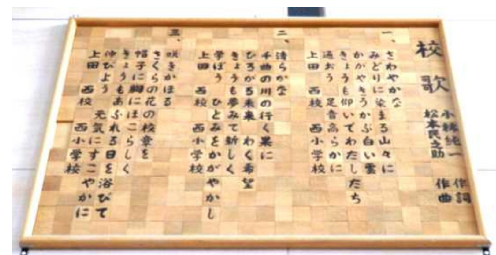 校歌
小林純一 作詞
松本民之助 作曲
一、
さわやかな
みどりに染まる山々に
かがやきうかぶ白い雲
きょうも仰いでわたしたち
通おう 足音高らかに
上田 西校 西小学校
二、
清らかな
千曲の川の行く果に
ひろがる未来 わく希望
きょうも夢みて新しく
学ぼう ひとみをかがやかし
上田 西校 西小学校
三、
咲きかほる
さくらの花の校章を
帽子に胸にほこらしく
きょうもあふれる日を浴びて
伸びよう 元気にすこやかに
上田 西校 西小学校